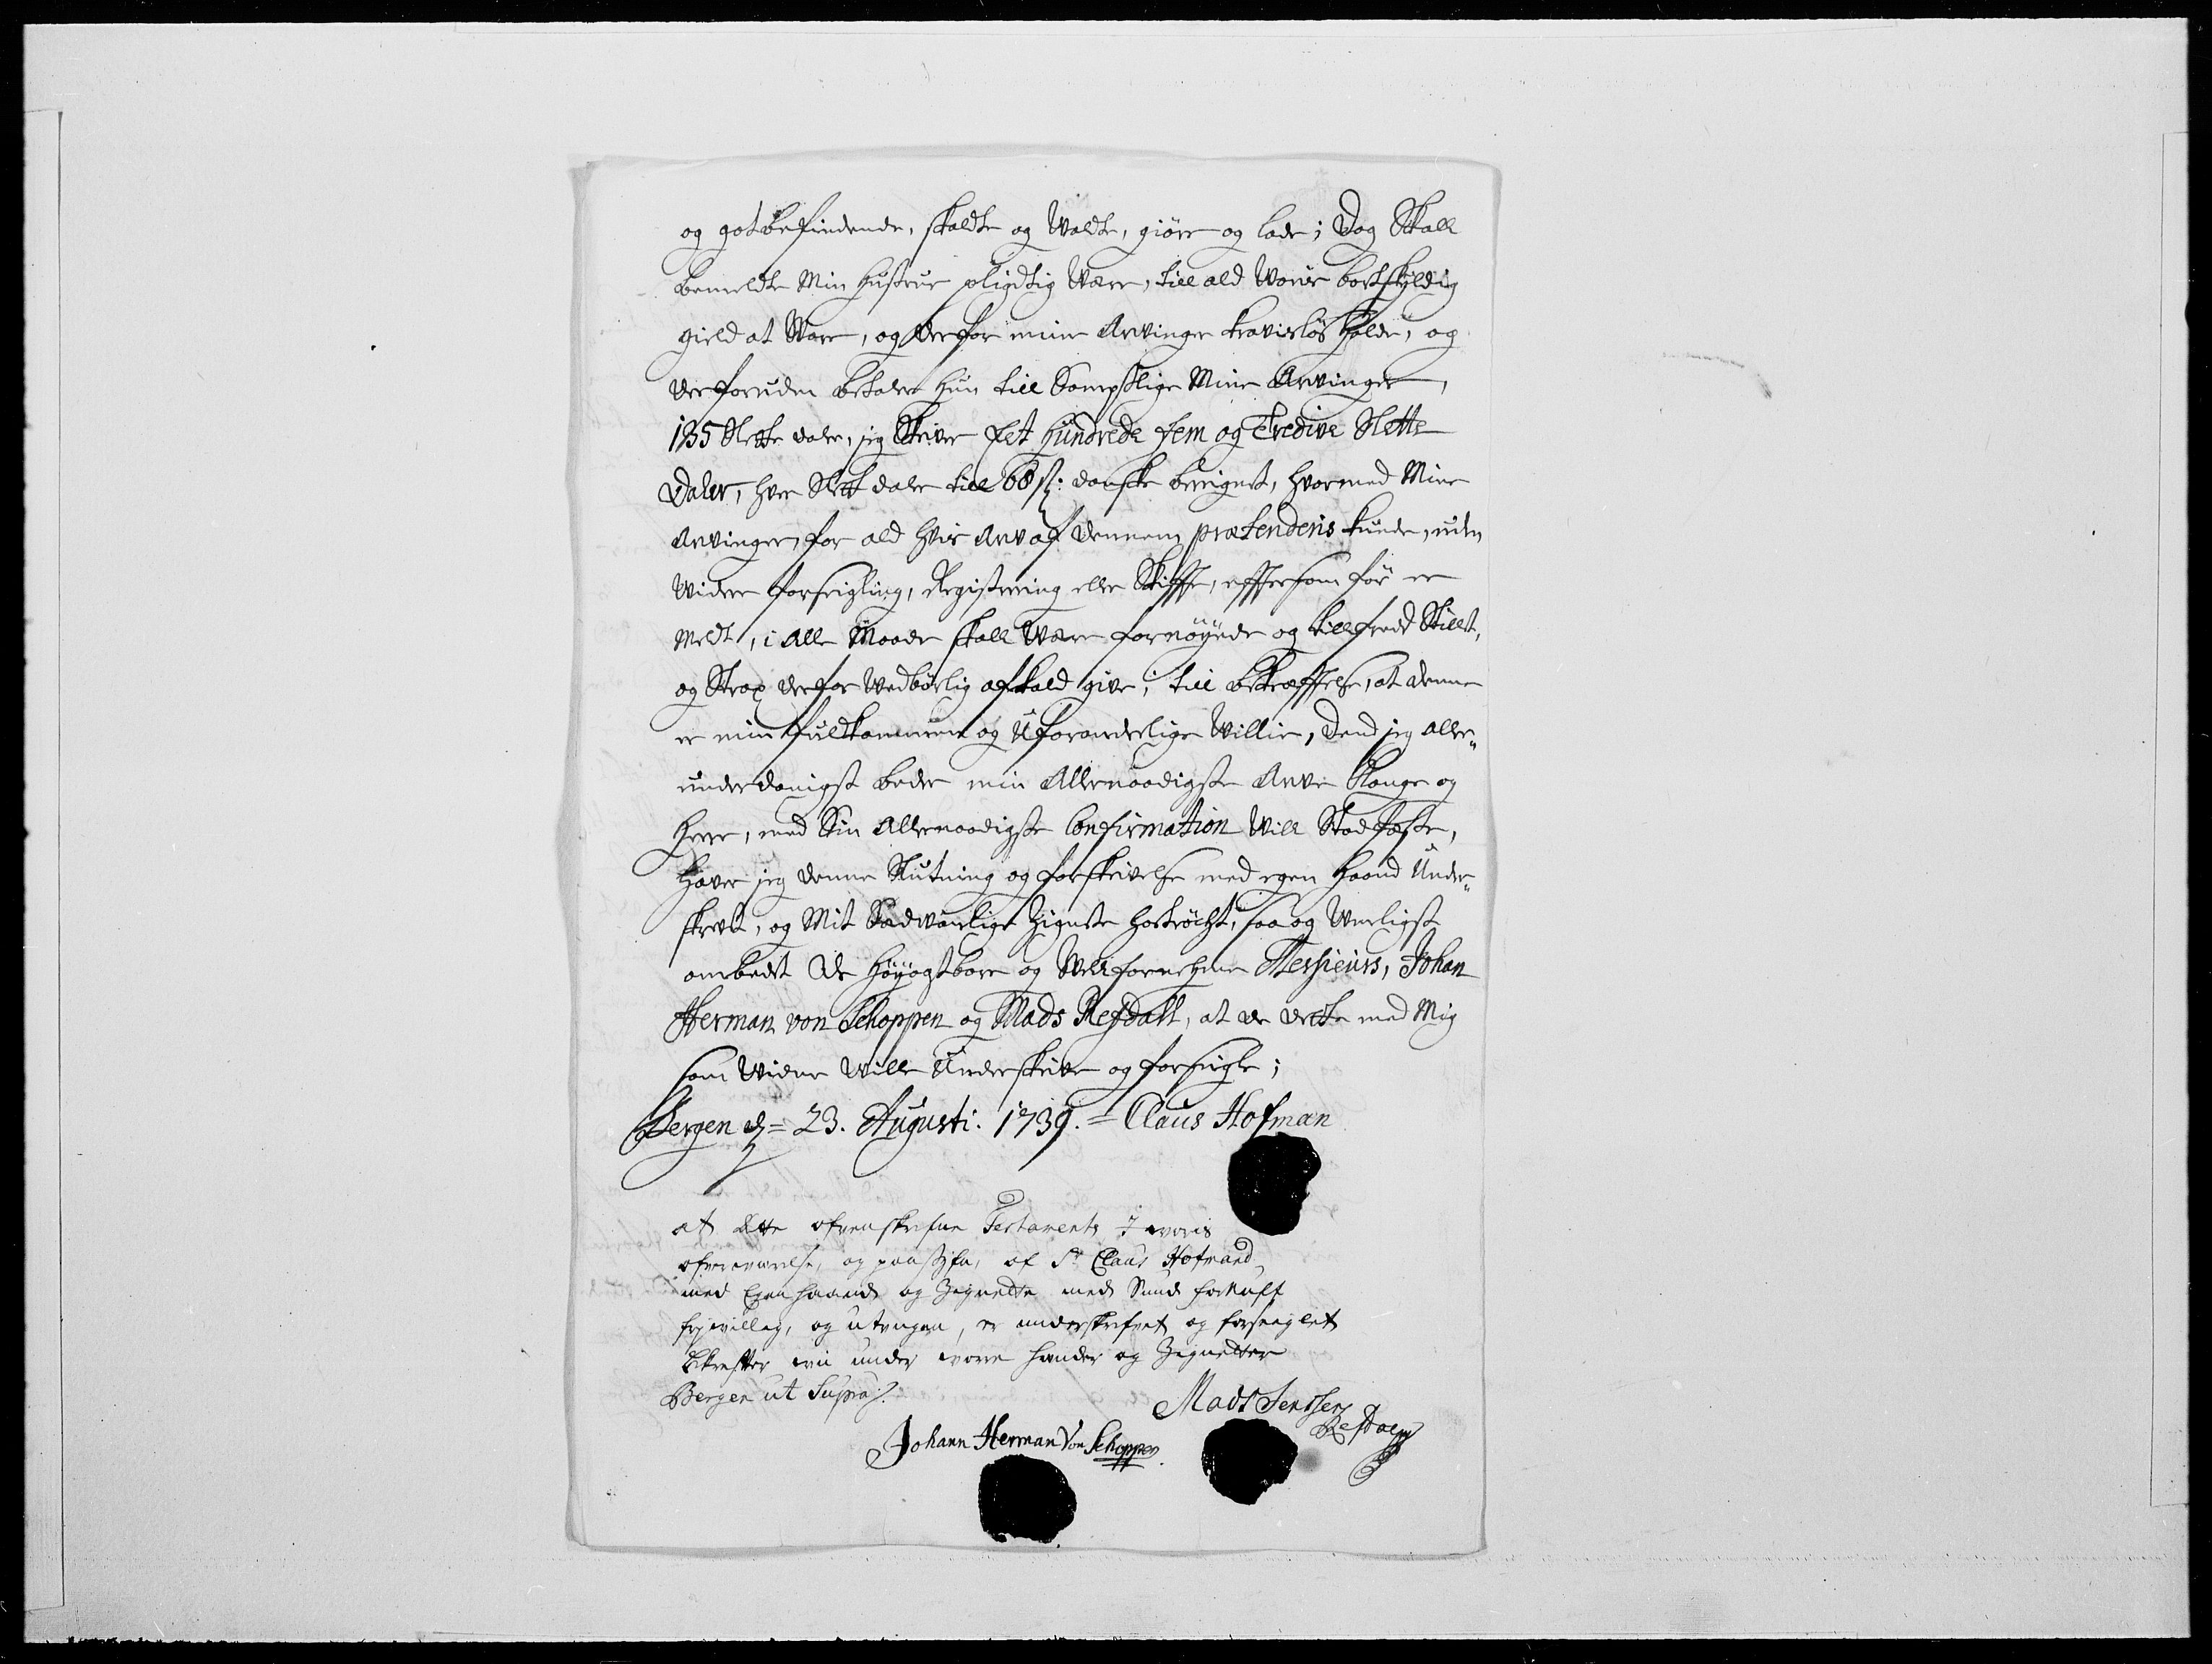 og gotbefindende, skaldte og Waldte, giöre og lade; Dog Skall
bemeldte Min Hustrue pligtig Være, till ald Vorris bortskyldig
gield at Svare, og derfor mine Arvinger kravislös holde, og
derforuden betaler hun till Samptlige Mine Arvinger,
135 Slette daler, jeg Skriver Eet Hundrede Fem og Tredive Slette
Daler, hver Slet daler till 66 ſz: danske beregnet, hvormed Mine
Arvinger, for ald hvis Arv af dennem prætenderis kunde, uden
Widere forseigling, Registering eller Skiffte, efftersom för er
Meldt, i Alle Maade skall Være fornöÿede og tillfreds Stillet,
og Strax derfor Wedbörlig afkald give; till bekræfftelse, at denne
er min fuldkommen og Uforanderlige Willie, Dend jeg aller„
underdanigst beder min Allernaadigste Arve Konge og
Herre, med Sin Allernaadigste Confirmation Will Stadfæste,
Haver jeg denne Slutning og forskrivelse med egen Haand Under„
skrevet, og Mit Sædvanlige Zignete hostrÿcht, saa og Venligst
ombedet De Höÿagtbare og Velfornehme Messieurs, Johan
Herman von Schoppen og Mads Refdall, at de dette med Mig
som Vidner Wille Underskrive og forsegle;
Bergen d= 23. Augusti: 1739. = Claus Hofman
at dette ofvenskrefne Testamente i voris
ofverværelse, og paasyfn, af Sr Claus Hofmand
med Egen haand og Zignette med Sund fornufft
frjvillig, og utvngen, er underskrefvet og forseiglet
Bekrefter vii under vorre hænder og Zignetter
Bergen ut Supra
Mads Jentsen
Refdaell
Johann Herman Von Schoppen